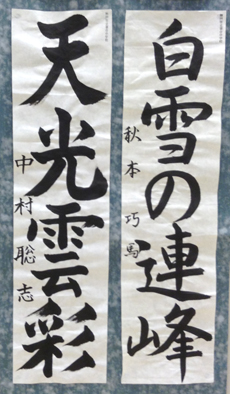 白雪の連峰
秋本巧馬
天光雲彩
中村聡志